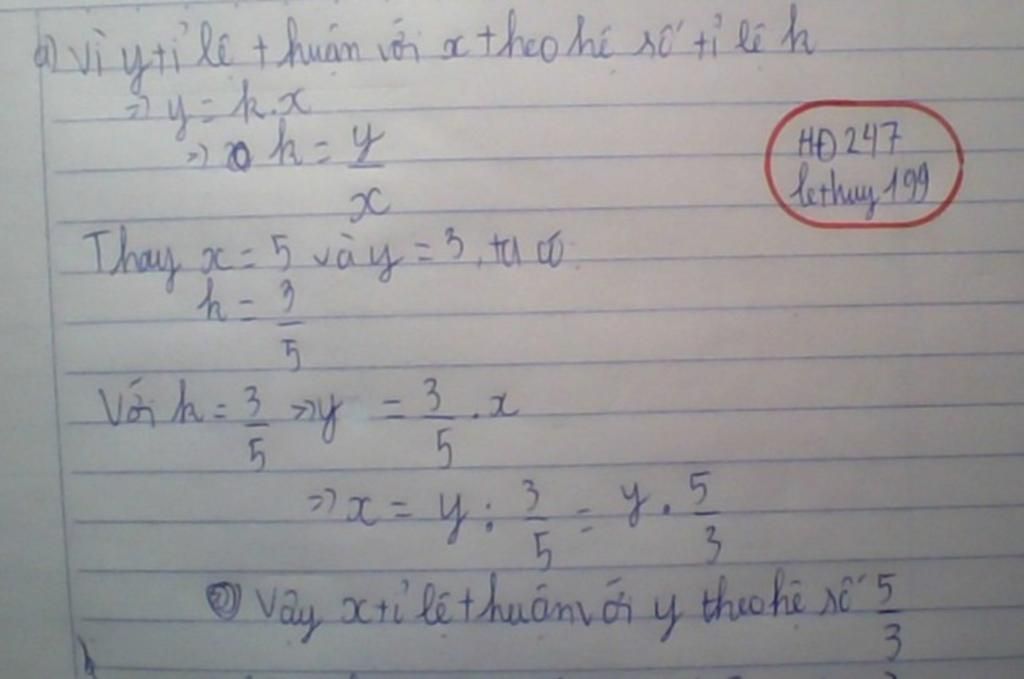 a) Vì y tỉ lệ thuận với x theo hệ số tỉ lệ k
=> y = k.x
=> k = y/x
HĐ 247
lethuy199
Thay x = 5 và y = 3, ta có
k = 3/5
Với k = 3/5 => y = 3/5 . x
=> x = y : 3/5 = y . 5/3
Vậy x tỉ lệ thuận với y theo hệ số 5/3